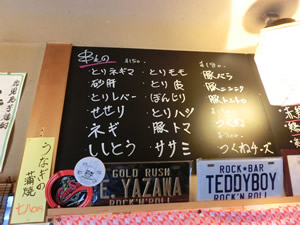 串もの
¥150
とりネギマ
砂肝
とりレバー
せせり
ネギ
ししとう
とりモモ
とり皮
ぼんじり
とりハツ
豚トマ
ササミ
¥180
豚バラ
豚ニンニク
豚トントロ
つくね
つくねチーズ
うなぎの
蒲焼
GOLD RUSH
E. YAZAWA
ROCK'N'ROLL
ROCK★BAR
TEDDYBOY
ROCK'N ROLL